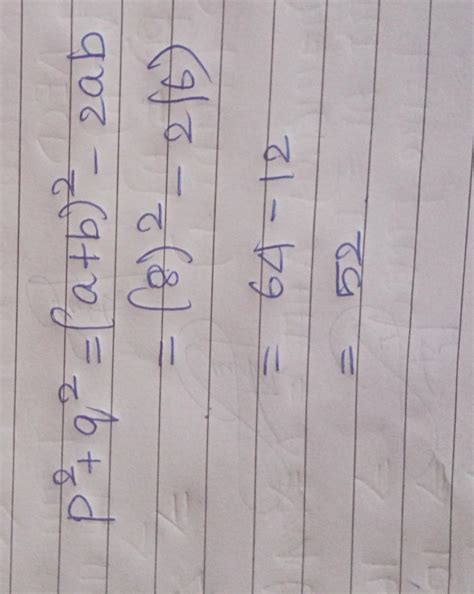 p²+q² = (a+b)² - 2ab
= (8)² - 2(6)
= 64 - 12
= 52